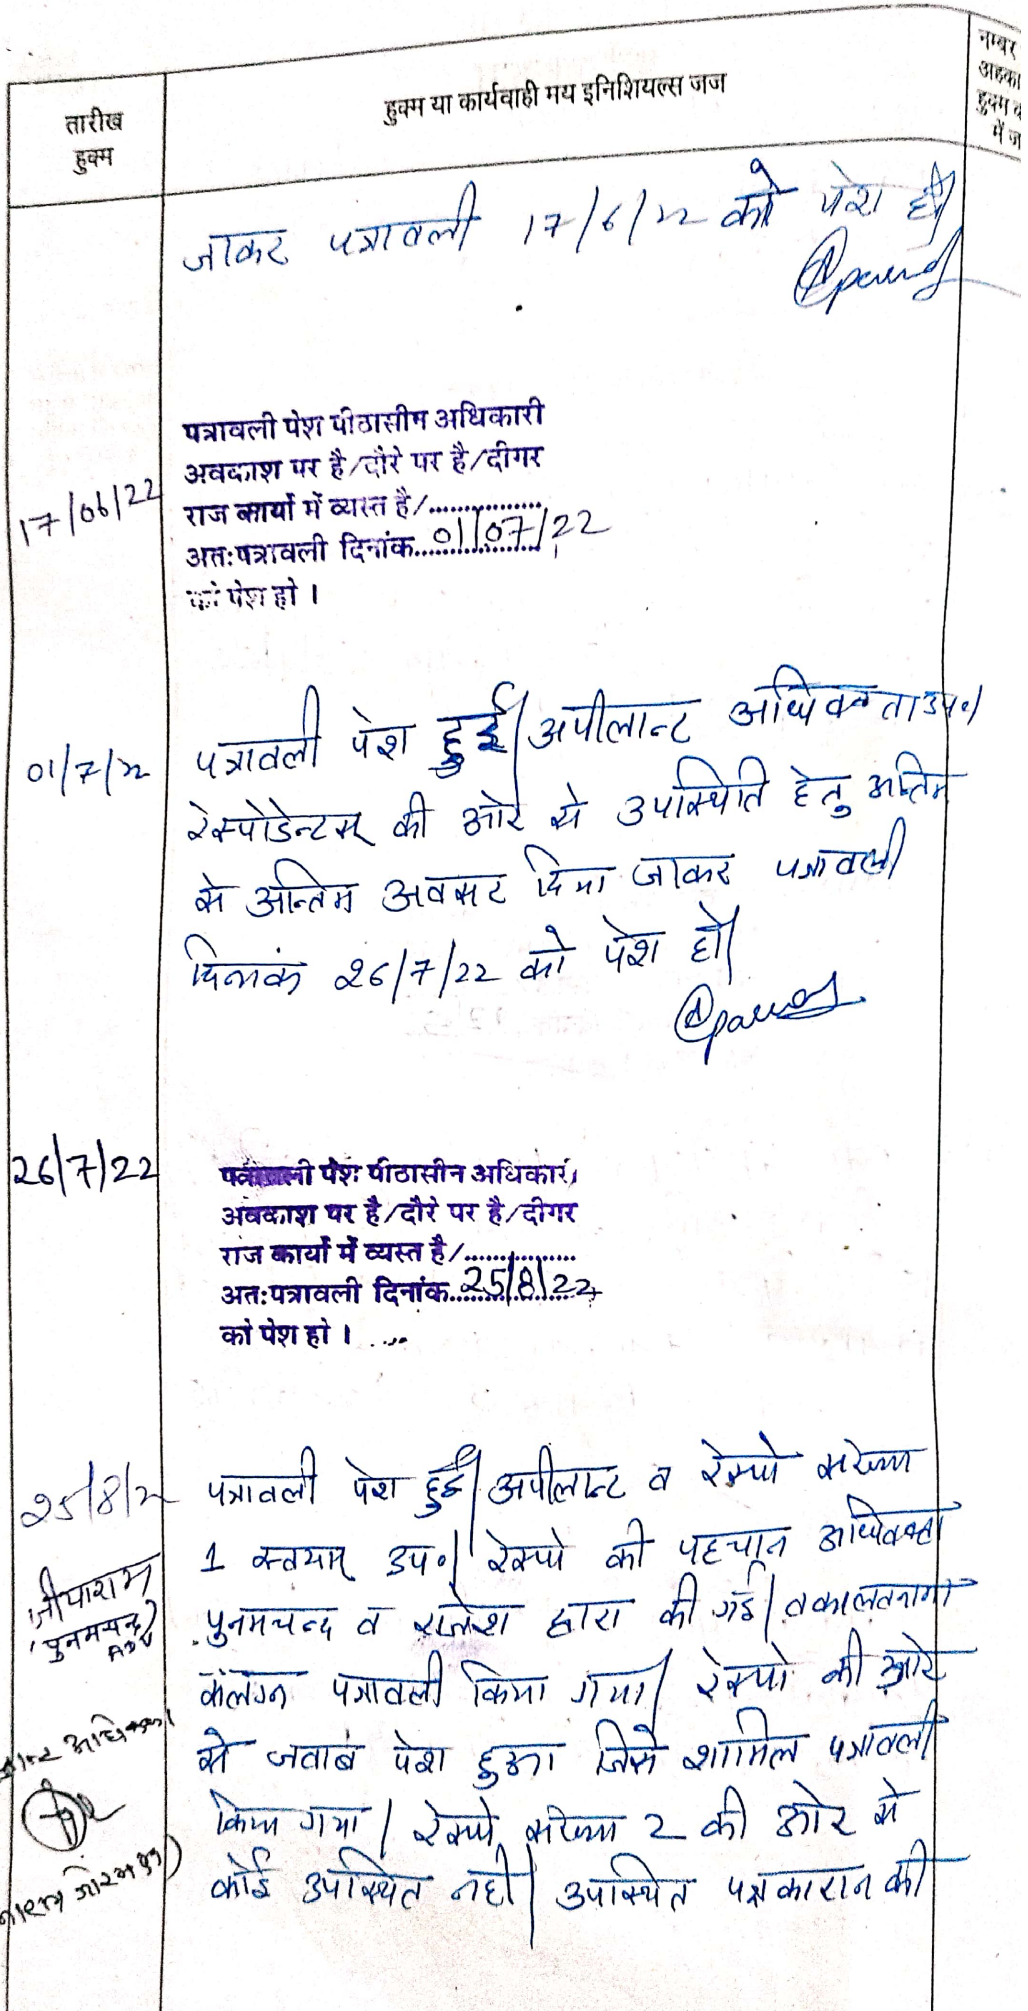 तारीख
हुक्म
हुक्म या कार्यवाही मय इनिशियल्स जज
नम्बर
अहका
हुक्म
में ज
जाकर पत्रावली 17/6/22 को पेश हो।
17/06/22
पत्रावली पेश पीठासीन अधिकारी
अवकाश पर है/दौरे पर है/दीगर
राज कार्यों में व्यस्त है/..................
अतः पत्रावली दिनांक 01/07/22
को पेश हो ।
01/7/22
पत्रावली पेश हुई। अपीलान्ट अधिवक्ता उप०।
रेस्पोडेन्टस् की ओर से उपस्थिति हेतु अन्तिम
से अन्तिम अवसर दिया जाकर पत्रावली
दिनाकं 26/7/22 को पेश हो।
26/7/22
पत्रावली पेश पीठासीन अधिकारी
अवकाश पर है/दौरे पर है/दीगर
राज कार्यों में व्यस्त है/..................
अतः पत्रावली दिनांक 25/8/22
को पेश हो ।
25/8/22
पत्रावली पेश हुई। अपीलान्ट व रेस्पो संख्या
1 स्वयम् उप०। रेस्पो की पहचान अधिवक्ता
पुनमचन्द व राजेश द्वारा की गई। वकालतनामा
संलग्न पत्रावली किया गया। रेस्पो की ओर
से जवाब पेश हुआ जिसे शामिल पत्रावली
किया गया। रेस्पो संख्या 2 की ओर से
कोई उपस्थित नही। उपस्थित पक्षकारान की
पुनमचन्द
Adv